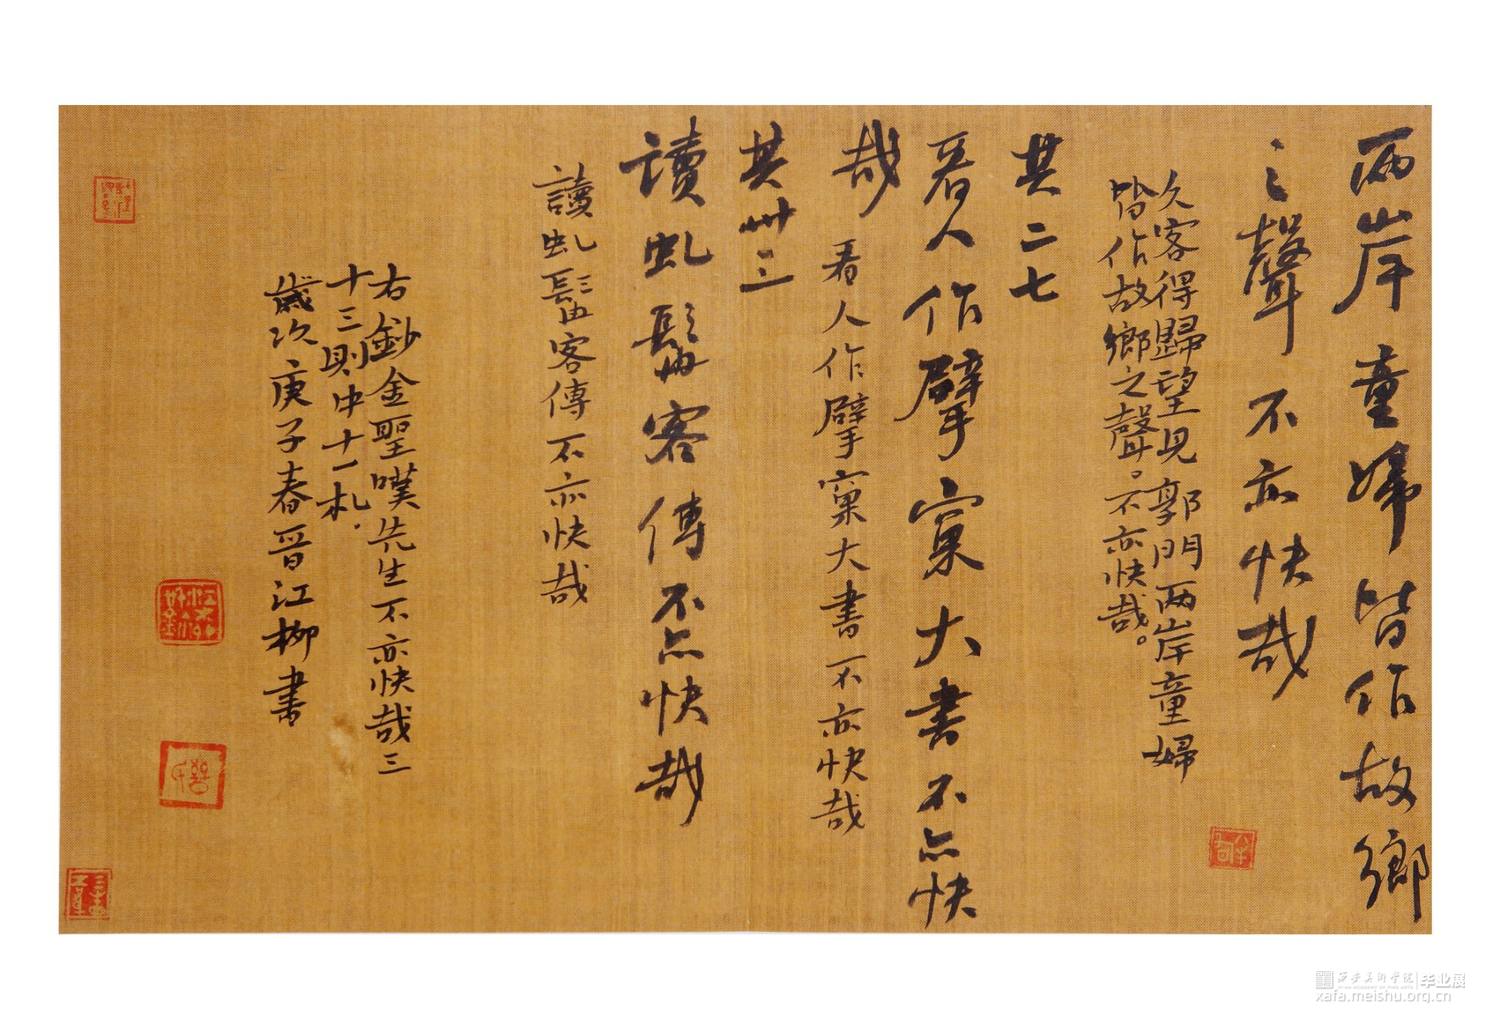 两岸童婦皆作故鄉
之聲不亦快哉
久客得歸望見郭門两岸童婦
皆作故鄉之聲。不亦快哉。
其二七
看人作擘窠大書不亦快
哉
看人作擘窠大書不亦快哉
其卅三
讀虬髯客傳不亦快哉
讀虬髯客傳不亦快哉
右鈔金聖嘆先生不亦快哉三
十三則中十一札.
歲次庚子春晉江柳書
西安美術學院 毕业展
xafa.meishu.org.cn